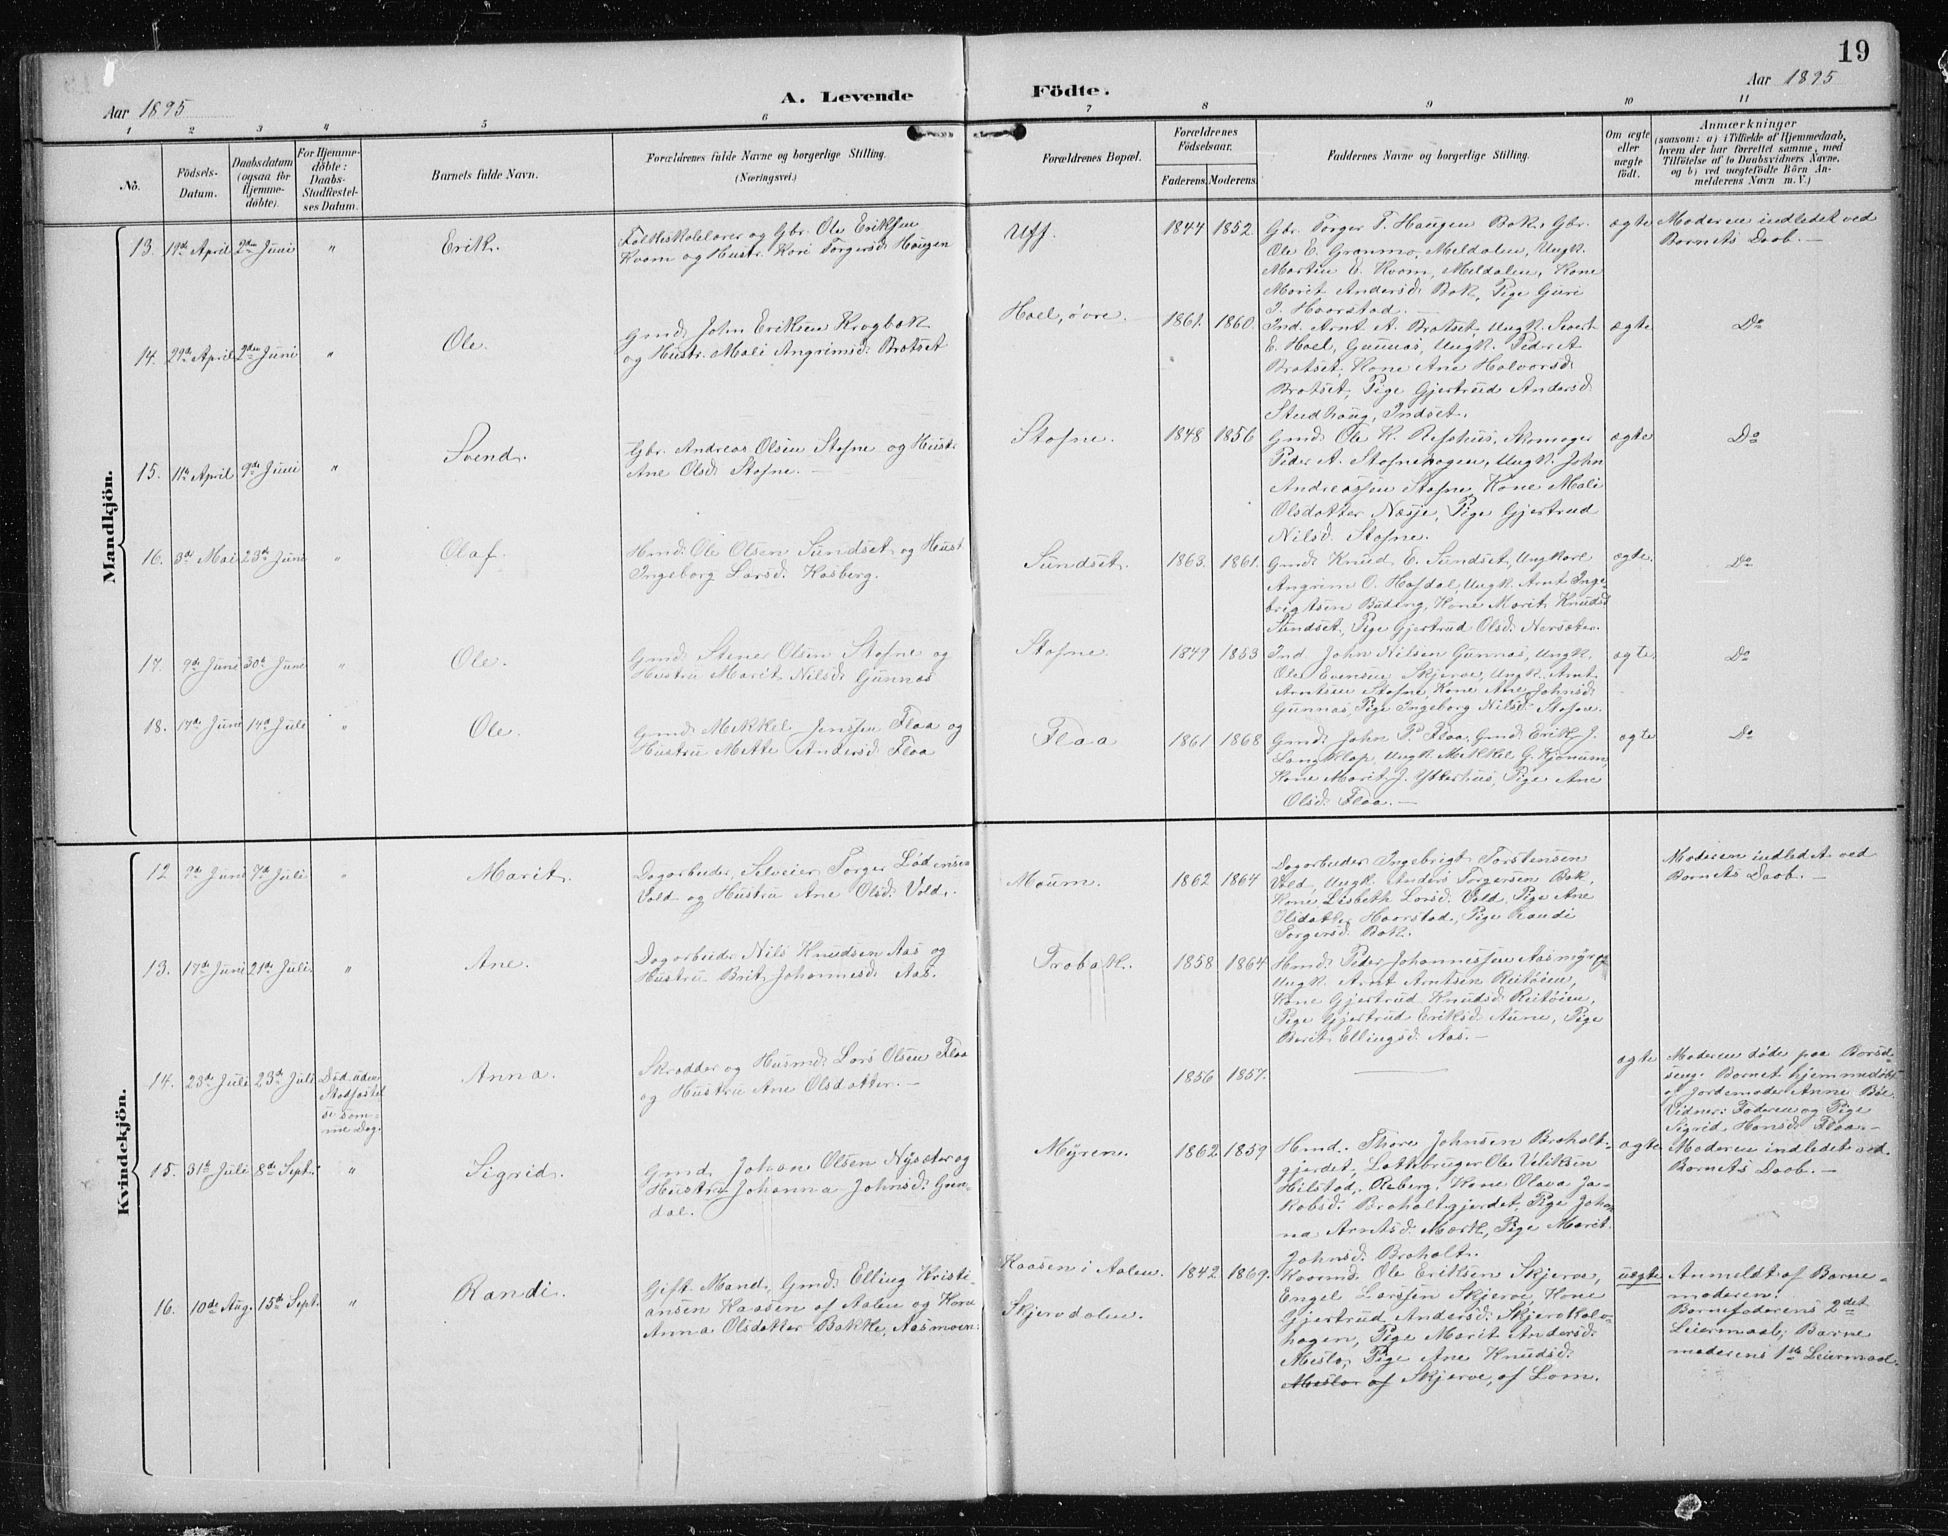 19
Aar 1895
A. Levende Födte.
Aar 1895
1 2 3 4 5 6 7 8 9 10 11
No.
Födsels-Datum.
Daabsdatum (ogsaa for Hjemme-döbte).
For Hjemme-döbte: Daabs-Stadfæstel-ses Datum.
Barnets fulde Navn.
Forældrenes fulde Navne og borgerlige Stilling. (Næringsvei.)
Forældrenes Bopæl.
Forældrenes Födselsaar.
Faderens. Moderens.
Faddernes Navne og borgerlige Stilling.
Om ægte eller uægte födt.
Anmærkninger
(saasom: a) i Tilfælde af Hjemmedaab,
hvem der har forrettet samme, med
Tilföielse af to Daabsvidners Navne,
og b) ved uægtefödte Börn An-
melderens Navn m. V.)
Mandkjön.
13. 19de April 2den Juni " Erik.
Folkeskolelærer og Gbr. Ole Eriksen
Kvam og Hustr. Kari Torgersd. Haugen
Uff. 1844 1852.
Gbr. Torger T. Haugen Bak, Gbr.
Ole E. Grønmo, Meldalen, Ungk.
Martin E. Kvam, Meldalen, Kone
Marit Andersd. Bak, Pige Guri
J. Haarstad. —
ægte Moderen indledet ved
Barnets Daab. —
14. 29de April 2den Juni " Ole.
Gmd. John Eriksen Krogbak
og Hustr. Mali Angrimsd. Brattset
Hoel, øvre. 1861. 1860.
Ind. Arnt A. Bratset, Ungk. Sivert
E. Hoel, Gunnas, Ungk. Peder A
Bratset, Kone Ane Halvorsd.
Bratset, Pige Gjertrud Andersd.
Studhaug, Indset.
ægte Do
15. 11te April 9de Juni " Svend.
Gbr. Andreas Olsen Stofne og Hustr.
Ane Olsd. Stofne. —
Stofne. 1848 1856
Gmd. Ole K. Refshus,
Peder A. Stofnehagen, Ungk. John
Andreassen Stofne, Kone Mali
Olsdatter Næsje, Pige Gjertrud
Nilsd. Stofne.
ægte Do
16. 3die Mai 23de Juni " Olaf.
Hmd. Ole Olsen Sundset og Hust
Ingeborg Larsd. Kasberg.
Sundset. 1863. 1861.
Gmd. Knud E. Sundset, Ungkarl
Angrim O. Hafdal, Ungk. Arnt Inge-
brigtsen Buding, Kone Marit Knudsd
Sundset, Pige Gjertrud Olsd. Nersæter.
ægte. Do
17. 9de Juni 30te Juni " Ole.
Gmd. Stener Olsen Stofne og
Hustru Marit Nilsd. Gunnas
Stofne. 1849 1853
Ind. John Nilsen Gunnas, Ungk.
Ole Evensen Skjerve, Ungk. Arnt
Arntsen Stofne, Kone Ane Johnsd.
Gunnas, Pige Ingeborg Nilsd. Stofne.
ægte. Do
18. 17de Juni 14de Juli " Ole.
Gmd. Mikkel Jenssen Flaa og
Hustru Mette Andersd. Flaa
Flaa 1861 1868
Gmd. John P. Flaa, Gmd. Erik J.
Langklop, Ungk. Mikkel G. Kjønum,
Kone Marit J. Ytterhus, Pige Ane
Olsd. Flaa. —
ægte Do
Kvindekjön.
12 9de Juni 7de Juli " Marit.
Dagarbeider, Selveier Torger Lødensen
Vold og Hustru Ane Olsd. Vold.
Moum. 1862 1864
Dagarbeider Ingebrigt Torstensen
Vold, Ungk. Anders Torgersen Bak,
Kone Lisbeth Larsd. Vold, Pige Ane
Olsdatter Haarstad, Pige Randi
Torgersd. Bak.
Moderen indledet ved
Barnets Daab. —
13. 17de Juni 21de Juli. " Ane.
Dagarbeider Nils Knudsen Aas og
Hustru Brit Johannesd. Aas.
Trobak. 1858 1864
Hmd. Peder Johannessen Aasmyren
Ungk. Arnt Arntsen Reitøien,
Kone Gjertrud Knudsd. Reitøien,
Pige Gjertrud Eriksd. Aune, Pige
Berit Ellingsd. Aas. —
14. 23de Juli 23de Juli Död uden
Stadfæstel
se sam-
me Dag.
Anna.
Skrædder og Husmd. Lars Olsen Flaa
og Hustru Ane Olsdatter. —
1856 1857.
ægte Moderen døde paa Barsel-
seng. Barnet hjemmedøbt
af Jordemoder Anne Böe.
Vidner: Faderen og Pige
Sigrid Hansd. Flaa. —
15. 31te Juli 8de Sept. " Sigrid.
Gmd. Johan Olsen Nysæter og
Hustru Johanna Johnsd. Gun-
dal.
Myren. 1862 1859
Hmd. Thore Johnsen Braholt-
gjerdet, Lottbruger Ole Veliksen
Hilstad, Reberg, Kone Olava Ja-
kobsd. Braholtgjerdet, Pige Johan
na Arntsd. Mærk, Pige Marit
Johnsd. Braholt.
ægte Moderen indledet ved
Barnets Daab. —
16. 10de Aug. 15de Sept. " Randi.
Gift Mand, Gmd. Elling Kristi-
ansen Kaasen af Aalen og Kone
Anna Olsdatter Bakke, Aasmoen.
Kaasen i Aalen.
Skjervdalen.
1842 1869.
Kaarmd. Ole Eriksen Skjerve,
Engel Larssen Skjerve, Kone
Gjertrud Andersd. Skjerve
hagen, Pige Marit Andersd.
Meslo, Pige Ane Knudsd.
Meslo af Skjerve, af Lom.
uægte Anmeldt af Barne-
moderen.
Barnefaderens 2det
Leiermaal, Barne
moderens 1ste Leiermaal.